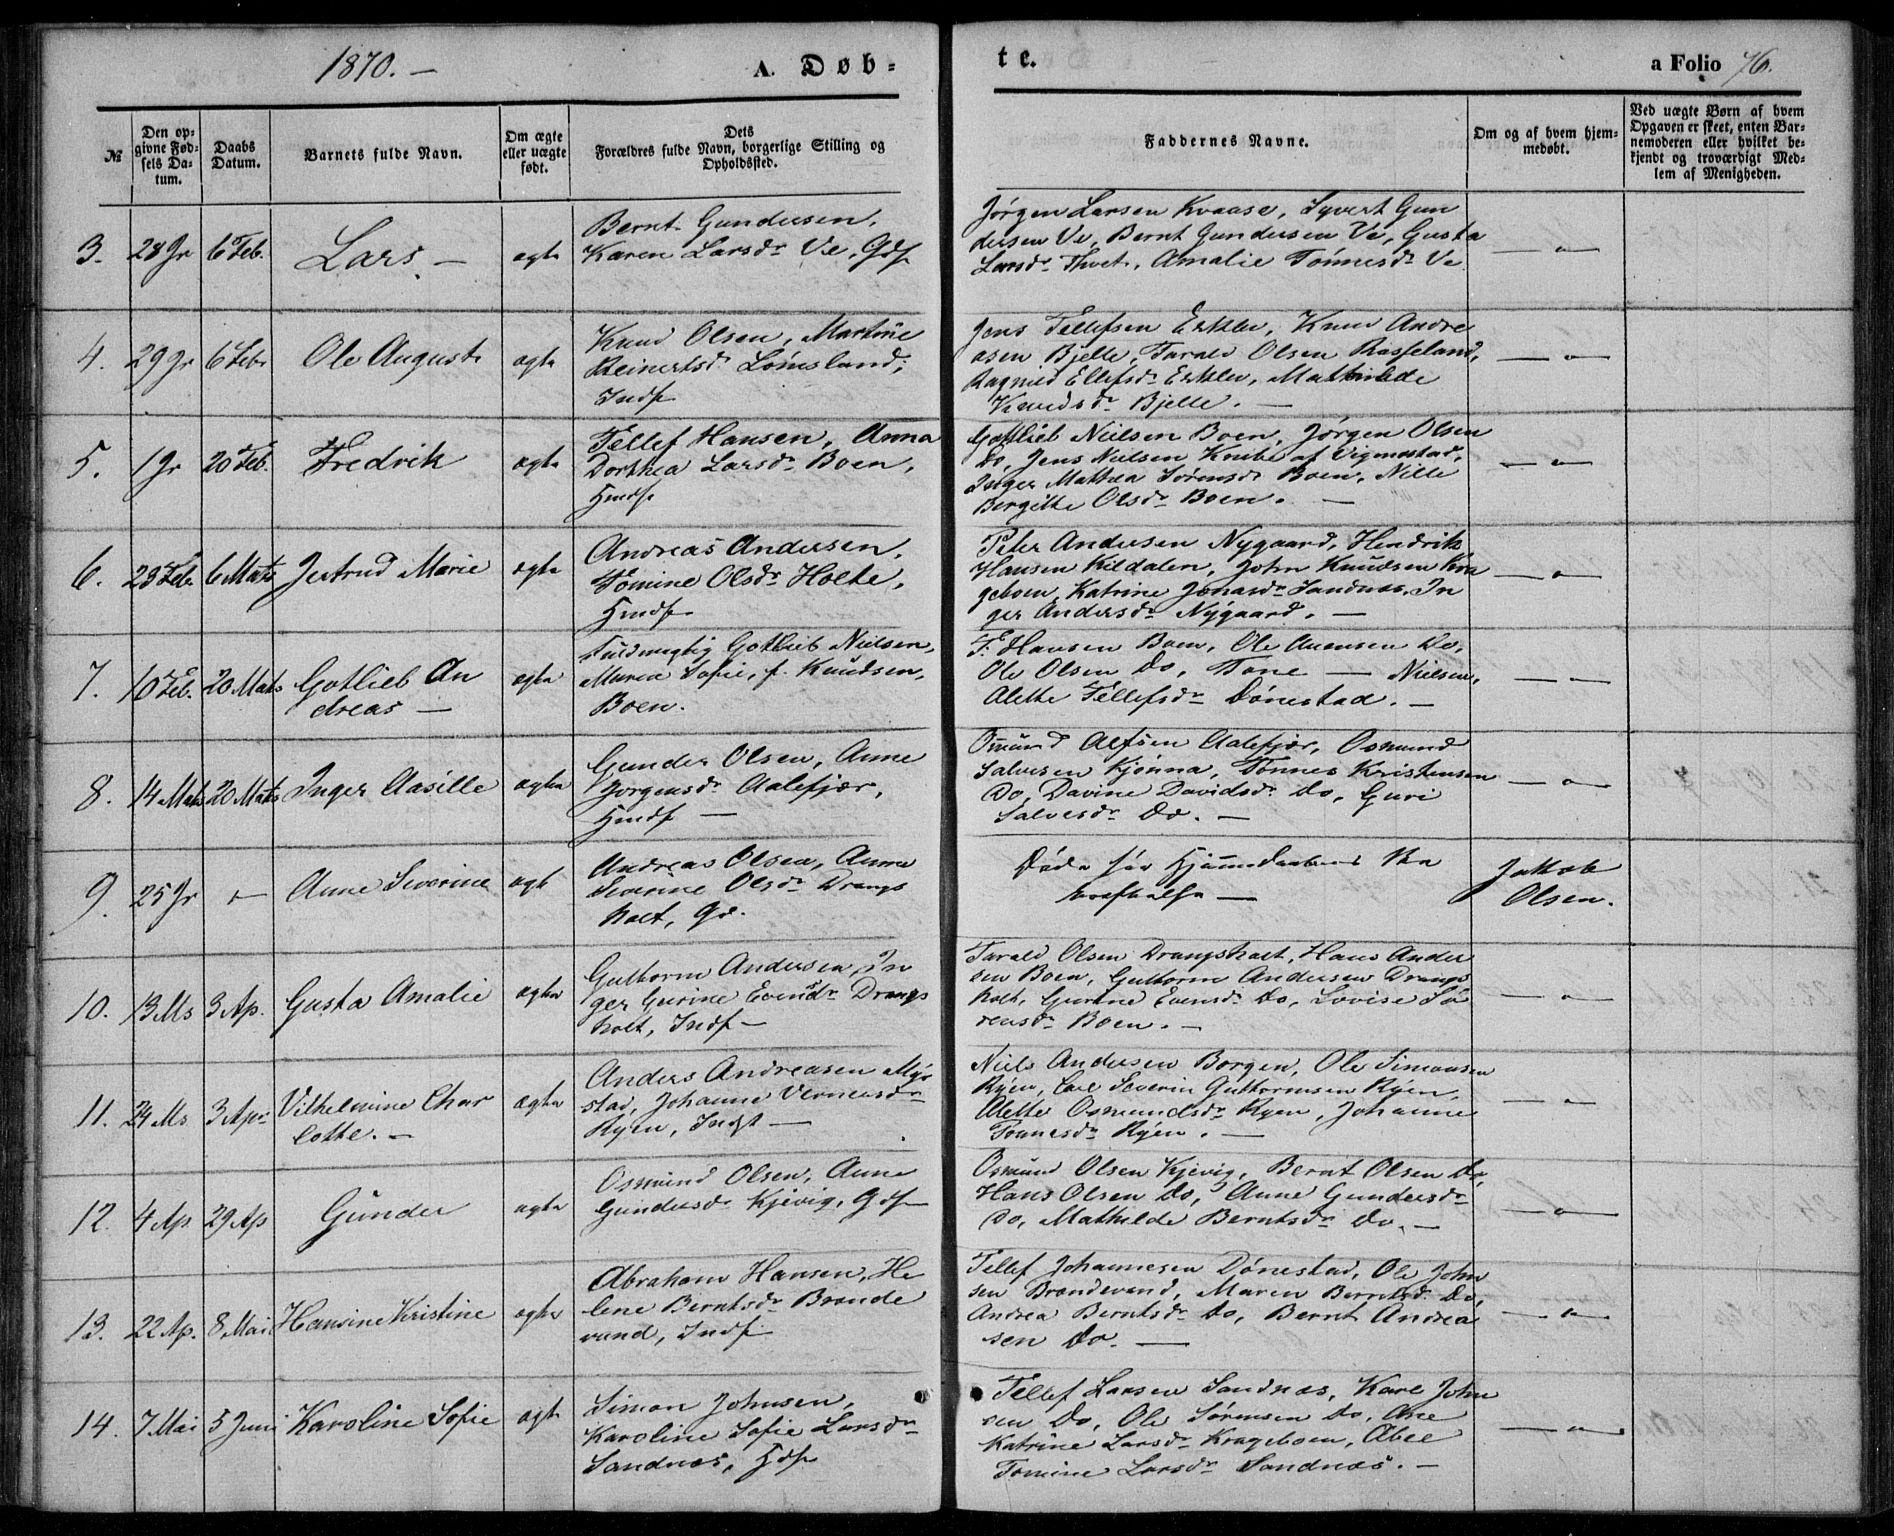 1870. —
A. Døb-
te.
a Folio 76.
№
Den op-
givne Fød-
sels Da-
tum.
Daabs
Datum.
Barnets fulde Navn.
Om ægte
eller uægte
født.
Dets
Forældres fulde Navn, borgerlige Stilling og
Opholdssted.
Faddernes Navne.
Om og af hvem hjem-
medøbt.
Ved uægte Børn af hvem
Opgaven er skeet, enten Bar-
nemoderen eller hvilket be-
kjendt og troværdigt Med-
lem af Menigheden.
3. 28 Jr 6 Feb. Lars — ægte
Bernt Gundersen,
Karen Larsdr Ve, Gdf
Jørgen Larsen Kvaase, Syvert Gun
dersen Ve, Bernt Gundersen Ve, Gusta
Larsdr Thvet, Amalie Tønnesdr Ve
4. 29 Jr 6 Febr Ole August ægte
Knud Olsen, Martine
Reinertsdr Lømsland,
Indf
Jens Tellefsen Erkleu, Knud Andre
asen Bjelle, Tarald Olsen Rosseland,
Ragnild Ellefsdr Erkleu, Mathilde
Knudsdr Bjelle. —
5. 1 Jr 20 Feb. Fredrik ægte
Tellef Hansen, Anna
Dorthea Larsdr Boen,
Hmdf
Gottlieb Nielsen Boen, Jørgen Olsen
Do, Jens Nielsen Knibe af Vigmostad,
Inger Mathea Sørensdr Boen, Nille
Bergitte Olsdr Boen. —
6. 28 Feb 6 Mats Jertrud Marie ægte
Andreas Andersen,
Tomine Olsdr Holte,
Hmdf
Peter Andersen Nygaard, Hendrik
Hansen Kildalen, John Knudsen Kra
geboen, Katrine Jonasdr Sandnæs, In
ger Andersdr Nygaard. —
7. 10 Feb. 20 Mats Gotlieb An
dreas — ægte
Fuldmegtig Gotlieb Nielsen,
Maren Sofie, f. Knudsen,
Boen.
T. Hansen Boen, Ole Auensen Do,
Ole Olsen Do, Tone — Nielsen,
Alette Tellefsdr Dønestad. —
8. 14 Mats 20 Mats Inger Aasille ægte
Gunder Olsen, Anne
Jørgensdr Aalefjær,
Hmdf —
Osmund Alfsen Aalefjær, Osmund
Salvesen Kjønna, Tønnes Kristensen
Do, Davine Davidsdr Do, Guri
Salvesdr Do. —
9. 25 Jr Anne Severine ægte
Andreas Olsen, Anne
Severine Olsdr Drangs
holt, Gd.
Døde før Hjemmedaabens Be
kræftelse —
Jakob
Olsen.
10. 13 Ms 3 Ap. Gusta Amalie ægte
Guttorm Andersen, In
ger Gurine Evensdr Drangs
holt, Indf —
Tarald Olsen Drangsholt, Hans Ander
sen Boen, Guttorm Andersen Drangs
holt, Gurine Evensdr Do, Lovise Sø
rensdr Boen. —
11. 24 Ms 3 Ap Vilhelmine Char
lotte. — ægte
Anders Andreasen Myr
stad, Johanne Vernersdr
Ryen, Indf —
Niels Andersen Borgen, Ole Simonsen
Ryen, Carl Severin Guttormsen Ryen,
Alette Osmundsdr Ryen, Johanne
Tønnesdr Ryen. —
12. 4 Ap 29 Ap Gunder ægte
Osmund Olsen, Anne
Gundersdr Kjevig, Gdf
Osmund Olsen Kjevig, Bernt Olsen Do,
Hans Olsen Do, Anne Gundersdr
Do, Mathilde Berntsdr Do. —
13. 22 Ap. 8 Mai Hansine Kristine ægte
Abraham Hansen, He
lene Berntsdr Brande
vand, Indf
Tellef Johannesen Dønestad, Ole John
sen Brandevand, Maren Berntsdr Do,
Andrea Berntsdr Do, Bernt Andrea
sen Do. —
14. 7 Mai 5 Juni Karoline Sofie ægte
Simon Johnsen,
Karoline Sofie Larsdr
Sandnæs, Hdf
Tellef Larsen Sandnæs, Karl John
sen Do, Ole Sørensen Do, Ane
Katrine Larsdr Krageboen, Abel
Tomine Larsdr Sandnæs. —